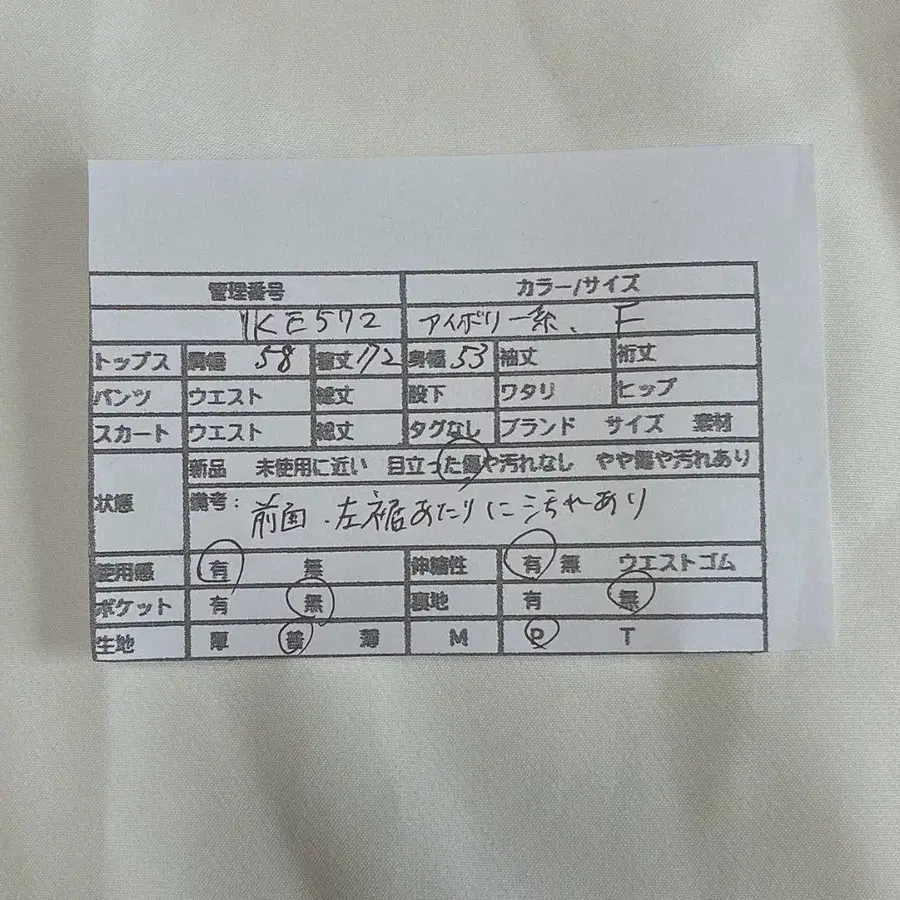 管理番号 カラー/サイズ
1KE572 アイボリー系、F
トップス 肩幅 58 着丈 172 身幅 53 袖丈 裄丈
パンツ ウエスト 総丈 股下 ワタリ ヒップ
スカート ウエスト 総丈 タグなし ブランド サイズ 素材
状態 新品 未使用に近い 目立った傷や汚れなし やや傷や汚れあり
備考: 前面.左裾あたりに汚れあり
使用感 有 無 伸縮性 有 無 ウエストゴム
ポケット 有 無 裏地 有 無
生地 厚 普 薄 M P T